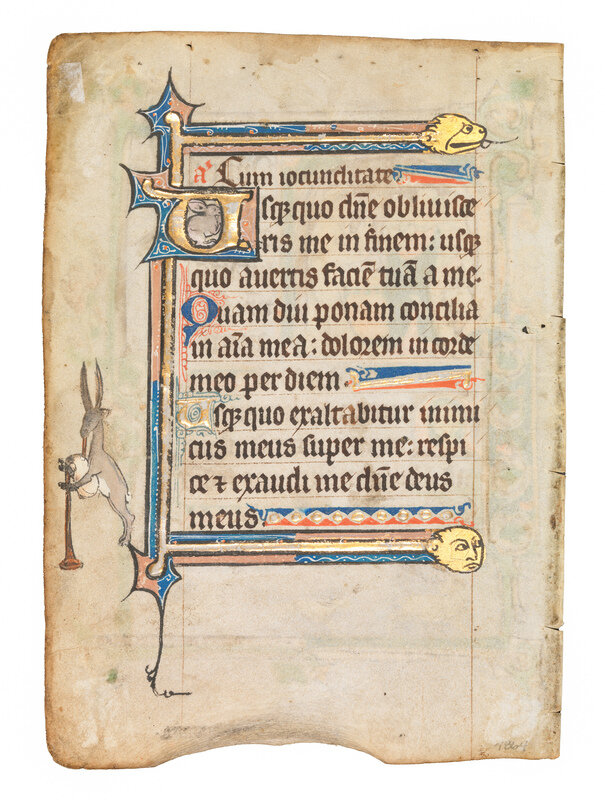 a Cum iocunditate
Usqꝫquo dn̄e obliuisce
ris me in finem: usqꝫ
quo auertis faciē tuā a me.
Quam diu ponam concilia
in aīa mea: dolorem in corde
meo per diem.
Usqꝫquo exaltabitur inimi
cus meus super me: respi
ce ⁊ exaudi me dn̄e deus
meus.